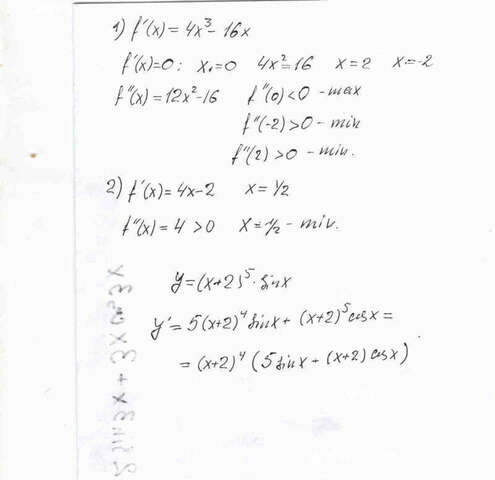 1) f'(x) = 4x³ - 16x
f'(x)=0: x₁=0 4x²=16 x=2 x=-2
f''(x) = 12x²-16 f''(0)<0 - max
f''(-2)>0 - min
f''(2)>0 - min.
2) f'(x)=4x-2 x=1/2
f''(x)=4>0 x=1/2 - min.
y=(x+2)⁵·sinx
y'=5(x+2)⁴sinx+(x+2)⁵cosx=
=(x+2)⁴(5sinx+(x+2)cosx)